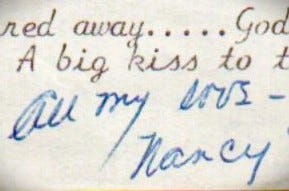 red away.....God
A big kiss to t
All my love -
Nancy